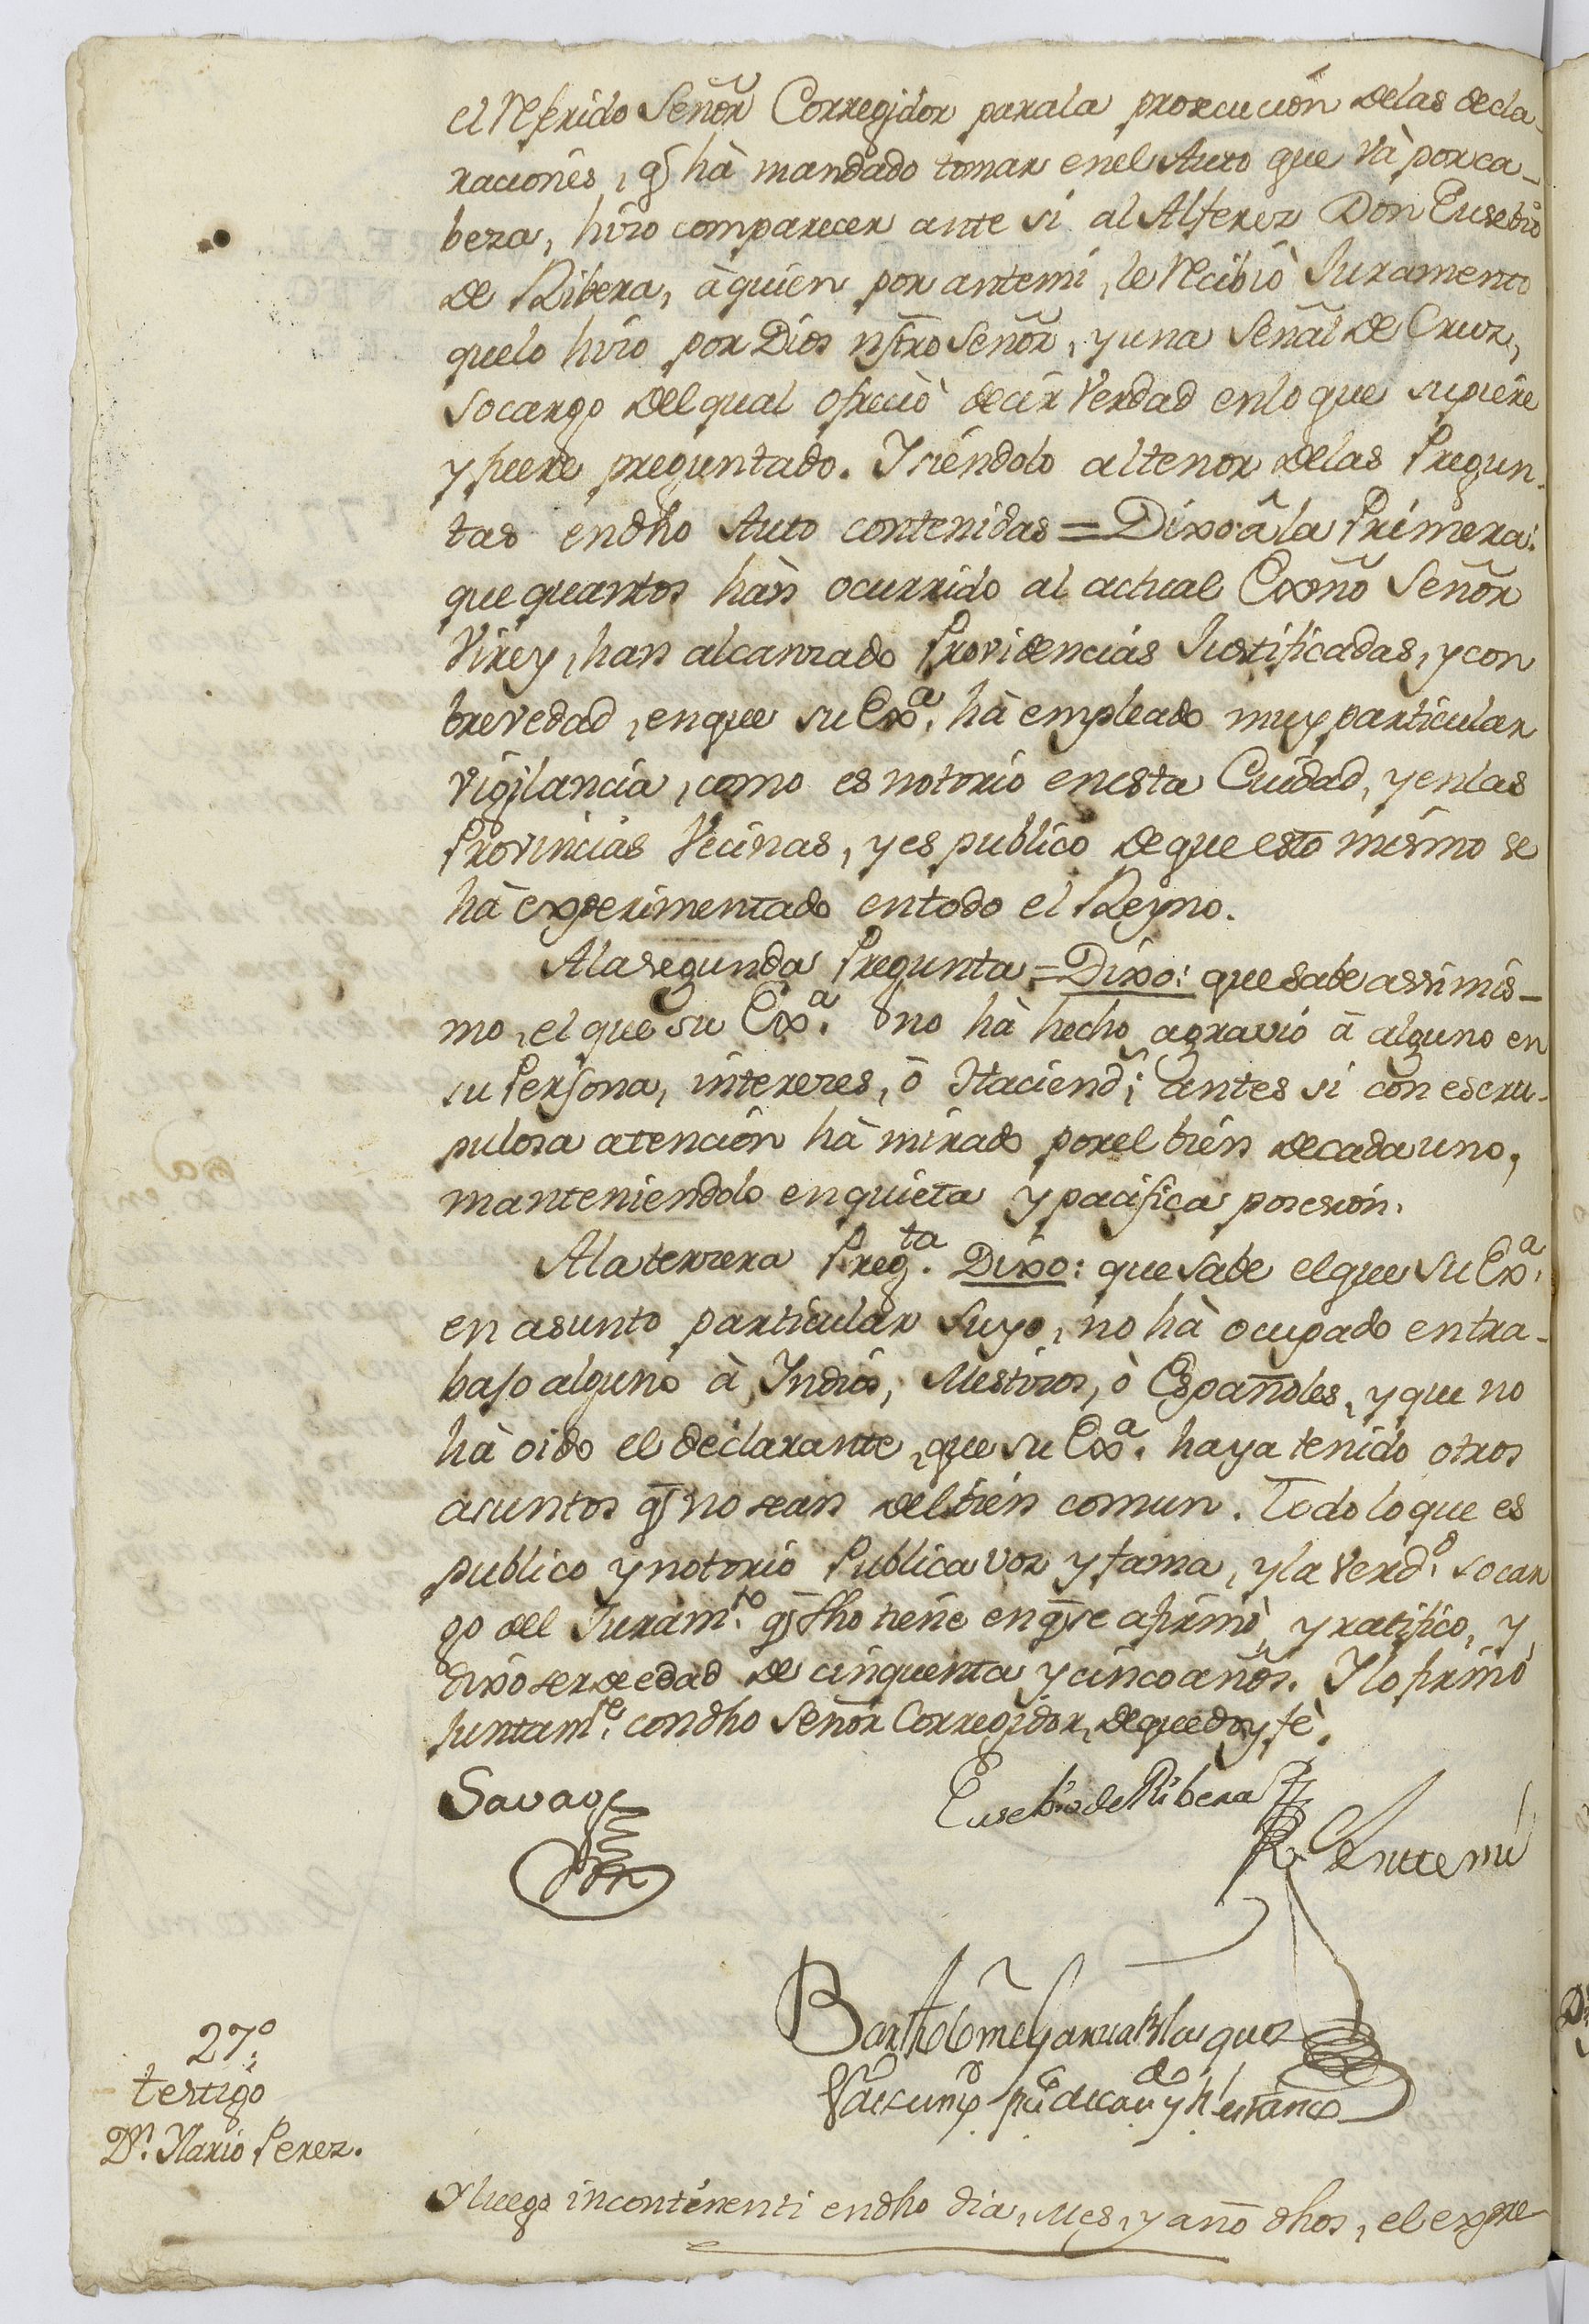 el referido Señor Corregidor parala prosecución delas decla-
raciones, q̃ hà mandado tomar enel Auto que và por ca-
beza, hizo comparecer ante si al Alferez Don Eusebio
de Ribera, à quien por antemi, le recibiò Juramento
quelo hizo por Dios nr̃o Señor, y una Señal de Cruz,
socargo del qual ofreciò decir Verdad enlo que supiere
y fuere preguntado. Y siéndolo altenor delas Pregun-
tas endho Auto contenidas = Dixo â la Primera:
que quantos hàn ocurrido al actual Exm̃o Señor
Virey, han alcanzado Providencias Justificadas, y con
brevedad, enque su Exª. hà empleado muy particular
vigilancia, como es notorio enesta Ciudad, y enlas
Provincias Vecinas, y es publico de que esto mismo se
hà experimentado entodo el Reyno.
Ala segunda Pregunta = Dixo: que sabe assimis-
mo, el que su Exª. no hà hecho agravio à alguno en
su Persona, intereses, ò Haciendª; antes si con escru-
pulosa atención hà mirado porel bien de cada uno,
manteniendolo en quieta y pacifica posesión.
Ala terzera Pregᵗᵃ. Dixo: que sabe el que su Exª.
en asunto particular suyo, no hà ocupado entra-
bajo alguno à Indios, Mestizos, ò Españoles, y que no
hà oido el declarante, que su Exª. haya tenido otros
asuntos q̃ no sean del bien comun. Todo lo que es
publico y notorio Publica voz y fama, y la Verdᵈ. socar
go del Juramᵗᵒ. q̃ fho tiene en q̃ se afirmò, y ratifico, y
dixo ser de edad de cinquenta y cinco años. Y lo firmò
Juntamᵗᵉ. condho Señor Corregidor, de que doy fè.
Savago
Eusebio de Ribera
Ante mi
Bartholome Garcia Blasquez
27º.
testigo
Dⁿ. Ylario Perez.
Y luego incontinenti endho dia, Mes, y año dhos, el expre-